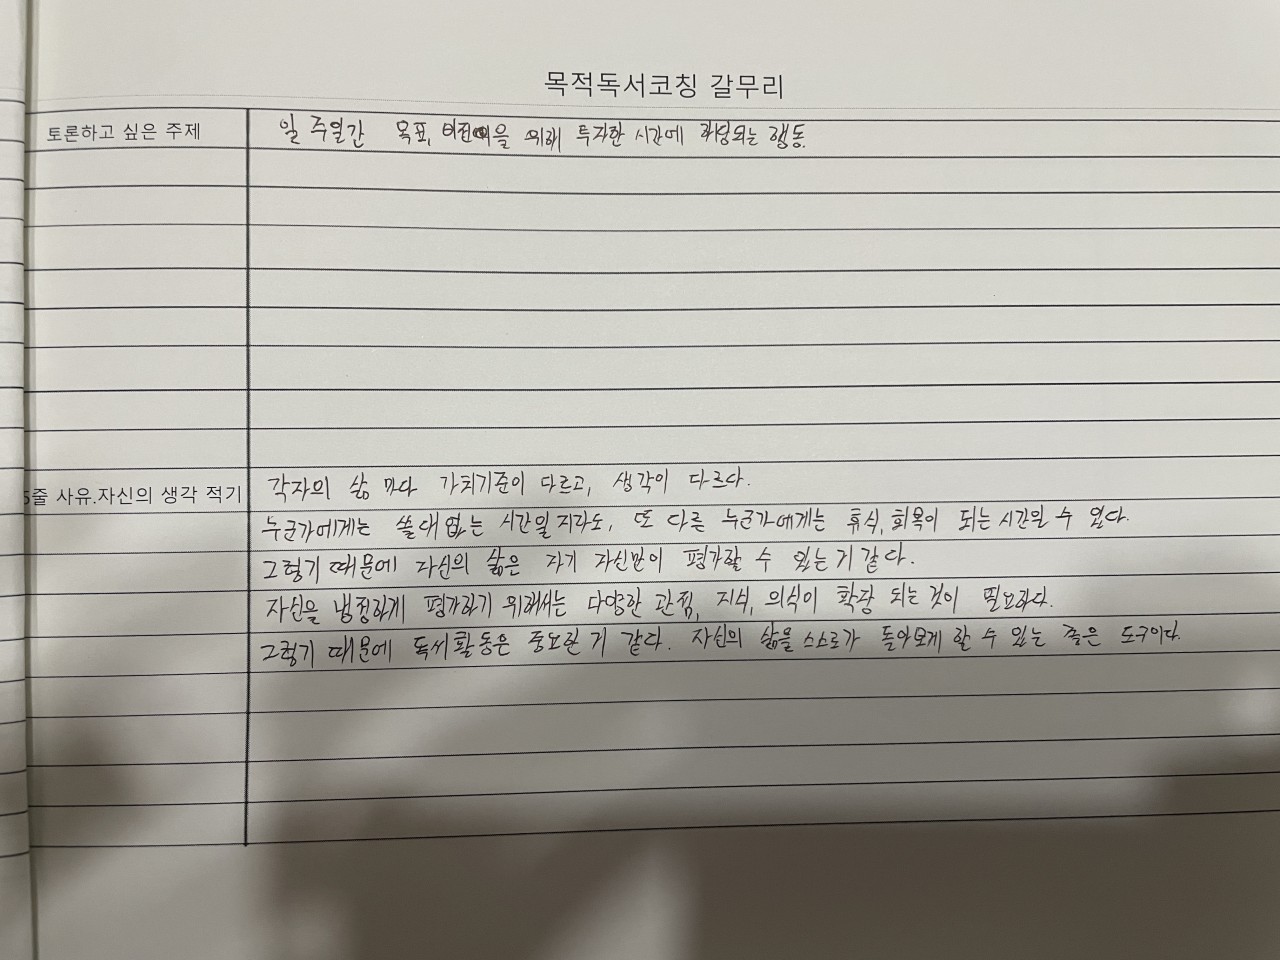 목적독서코칭 갈무리
토론하고 싶은 주제
일 주일간 목표, 비전을 위해 투자한 시간에 해당되는 행동.
5줄 사유.자신의 생각 적기
각자의 삶 마다 가치기준이 다르고, 생각이 다르다.
누군가에게는 쓸대 없는 시간일 지라도, 또 다른 누군가에게는 휴식, 회복이 되는 시간일 수 있다.
그렇기 때문에 자신의 삶은 자기 자신만이 평가할 수 있는 거 같다.
자신을 냉정하게 평가하기 위해서는 다양한 관점, 지식, 의식이 확장 되는 것이 필요하다.
그렇기 때문에 독서활동은 중요한 거 같다. 자신의 삶을 스스로가 돌아보게 할 수 있는 좋은 도구이다.